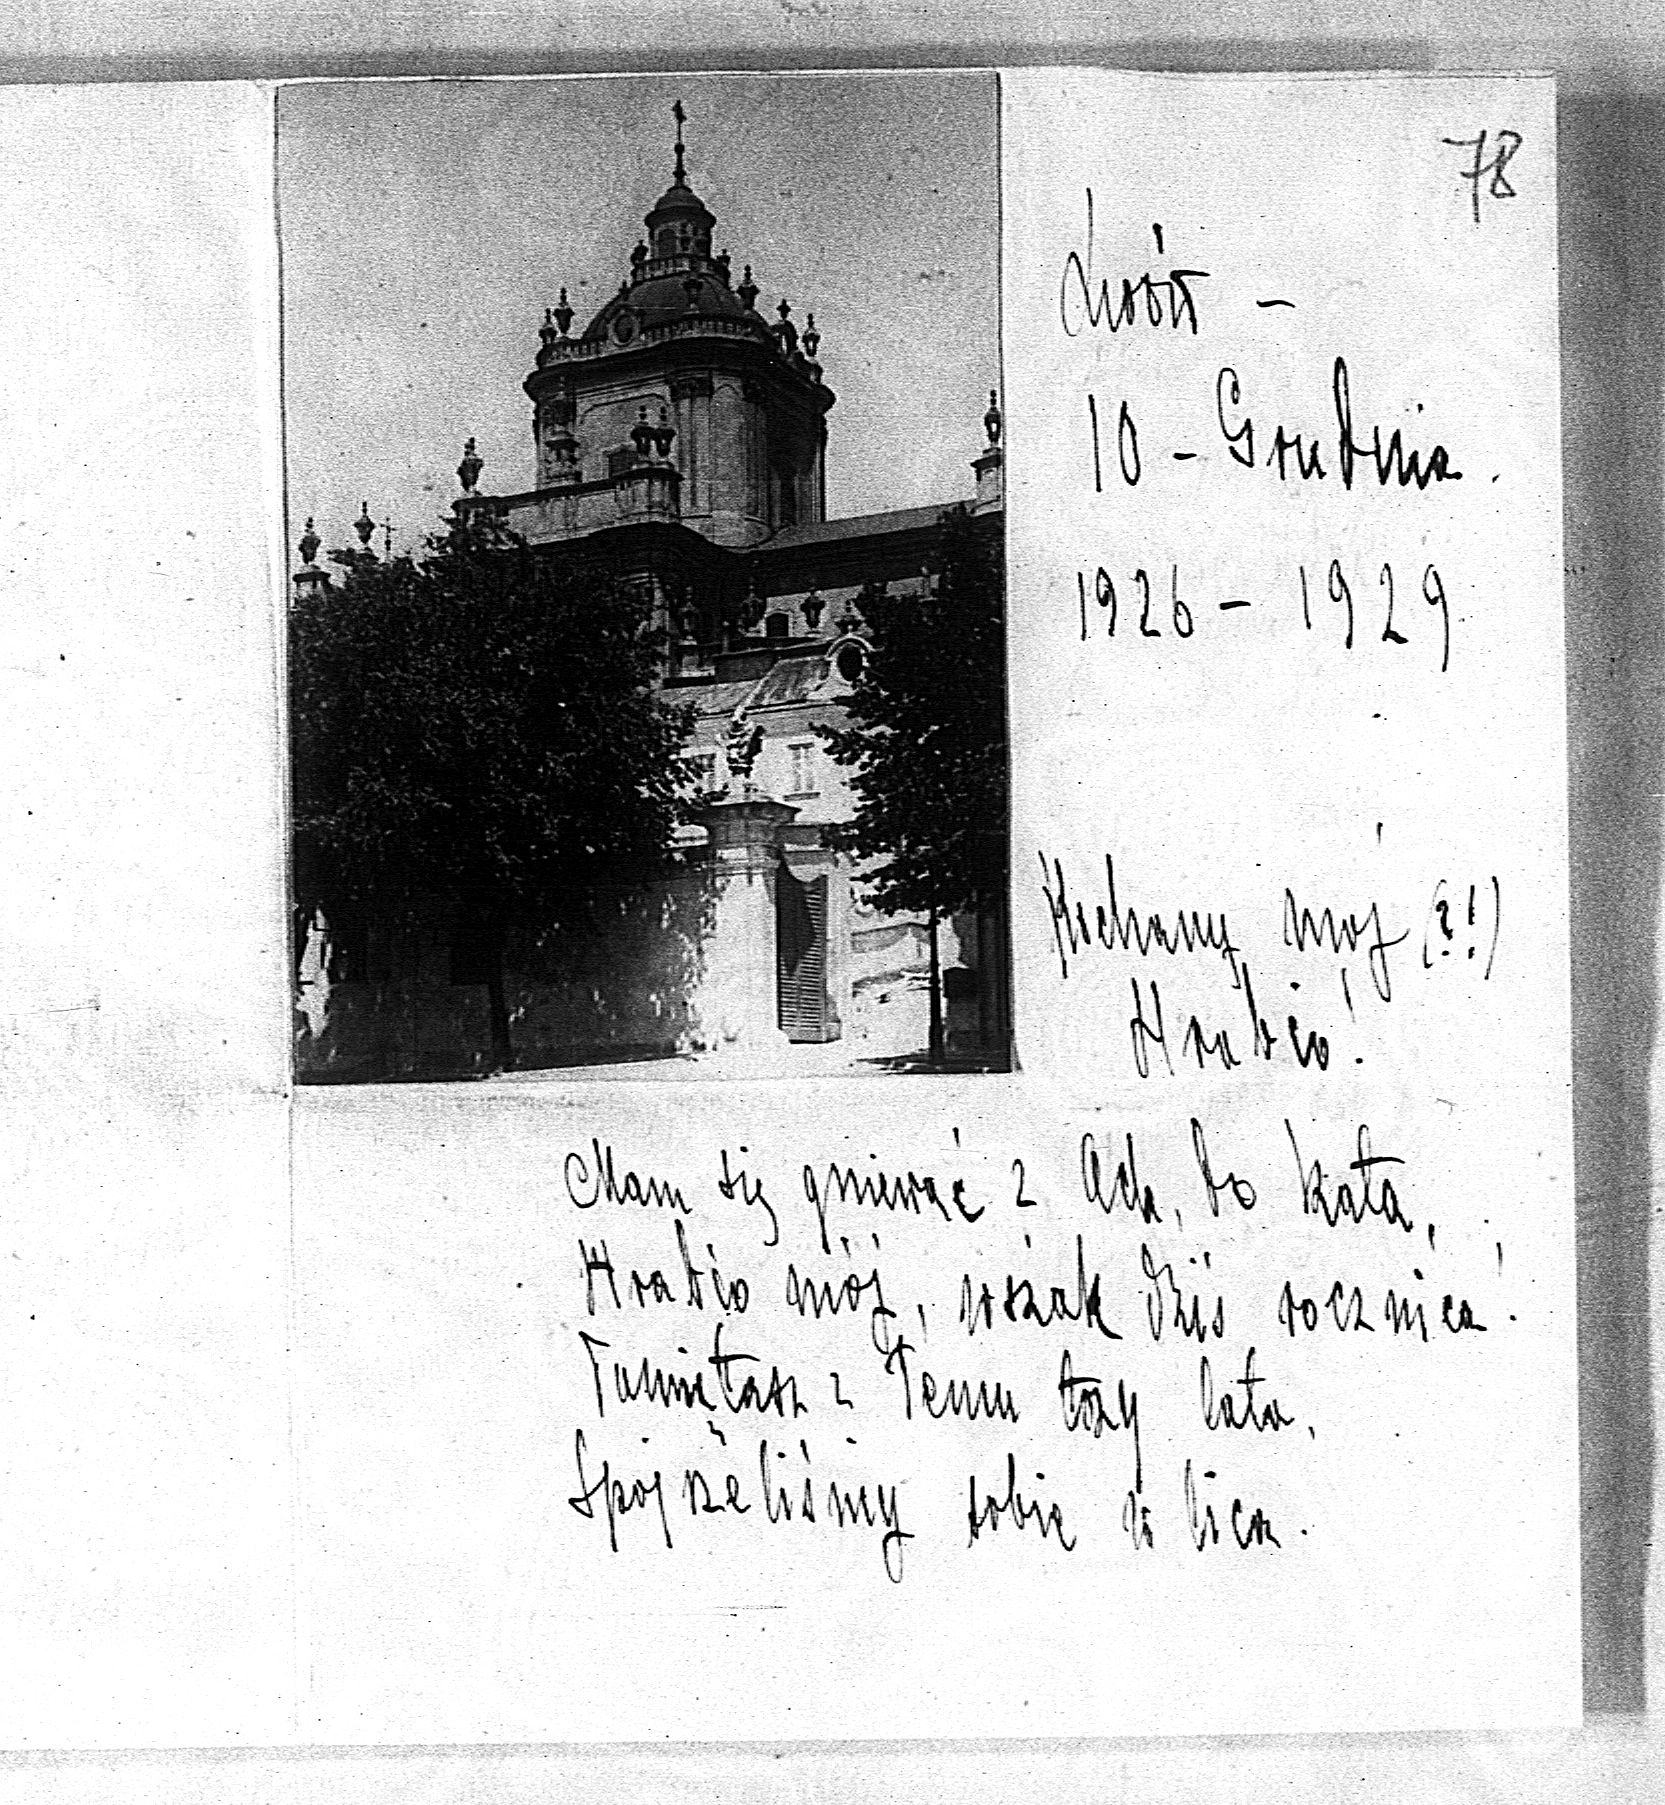 78
Lwów –
10 – Grudnia.
1926 – 1929
Kochany mój (?!)
Hrabio!
Mam się gniewać? Ach, do kata,
Hrabio mój, wszak dziś rocznica!
Pamiętasz? Temu trzy lata,
Spojrzeliśmy sobie w lica.